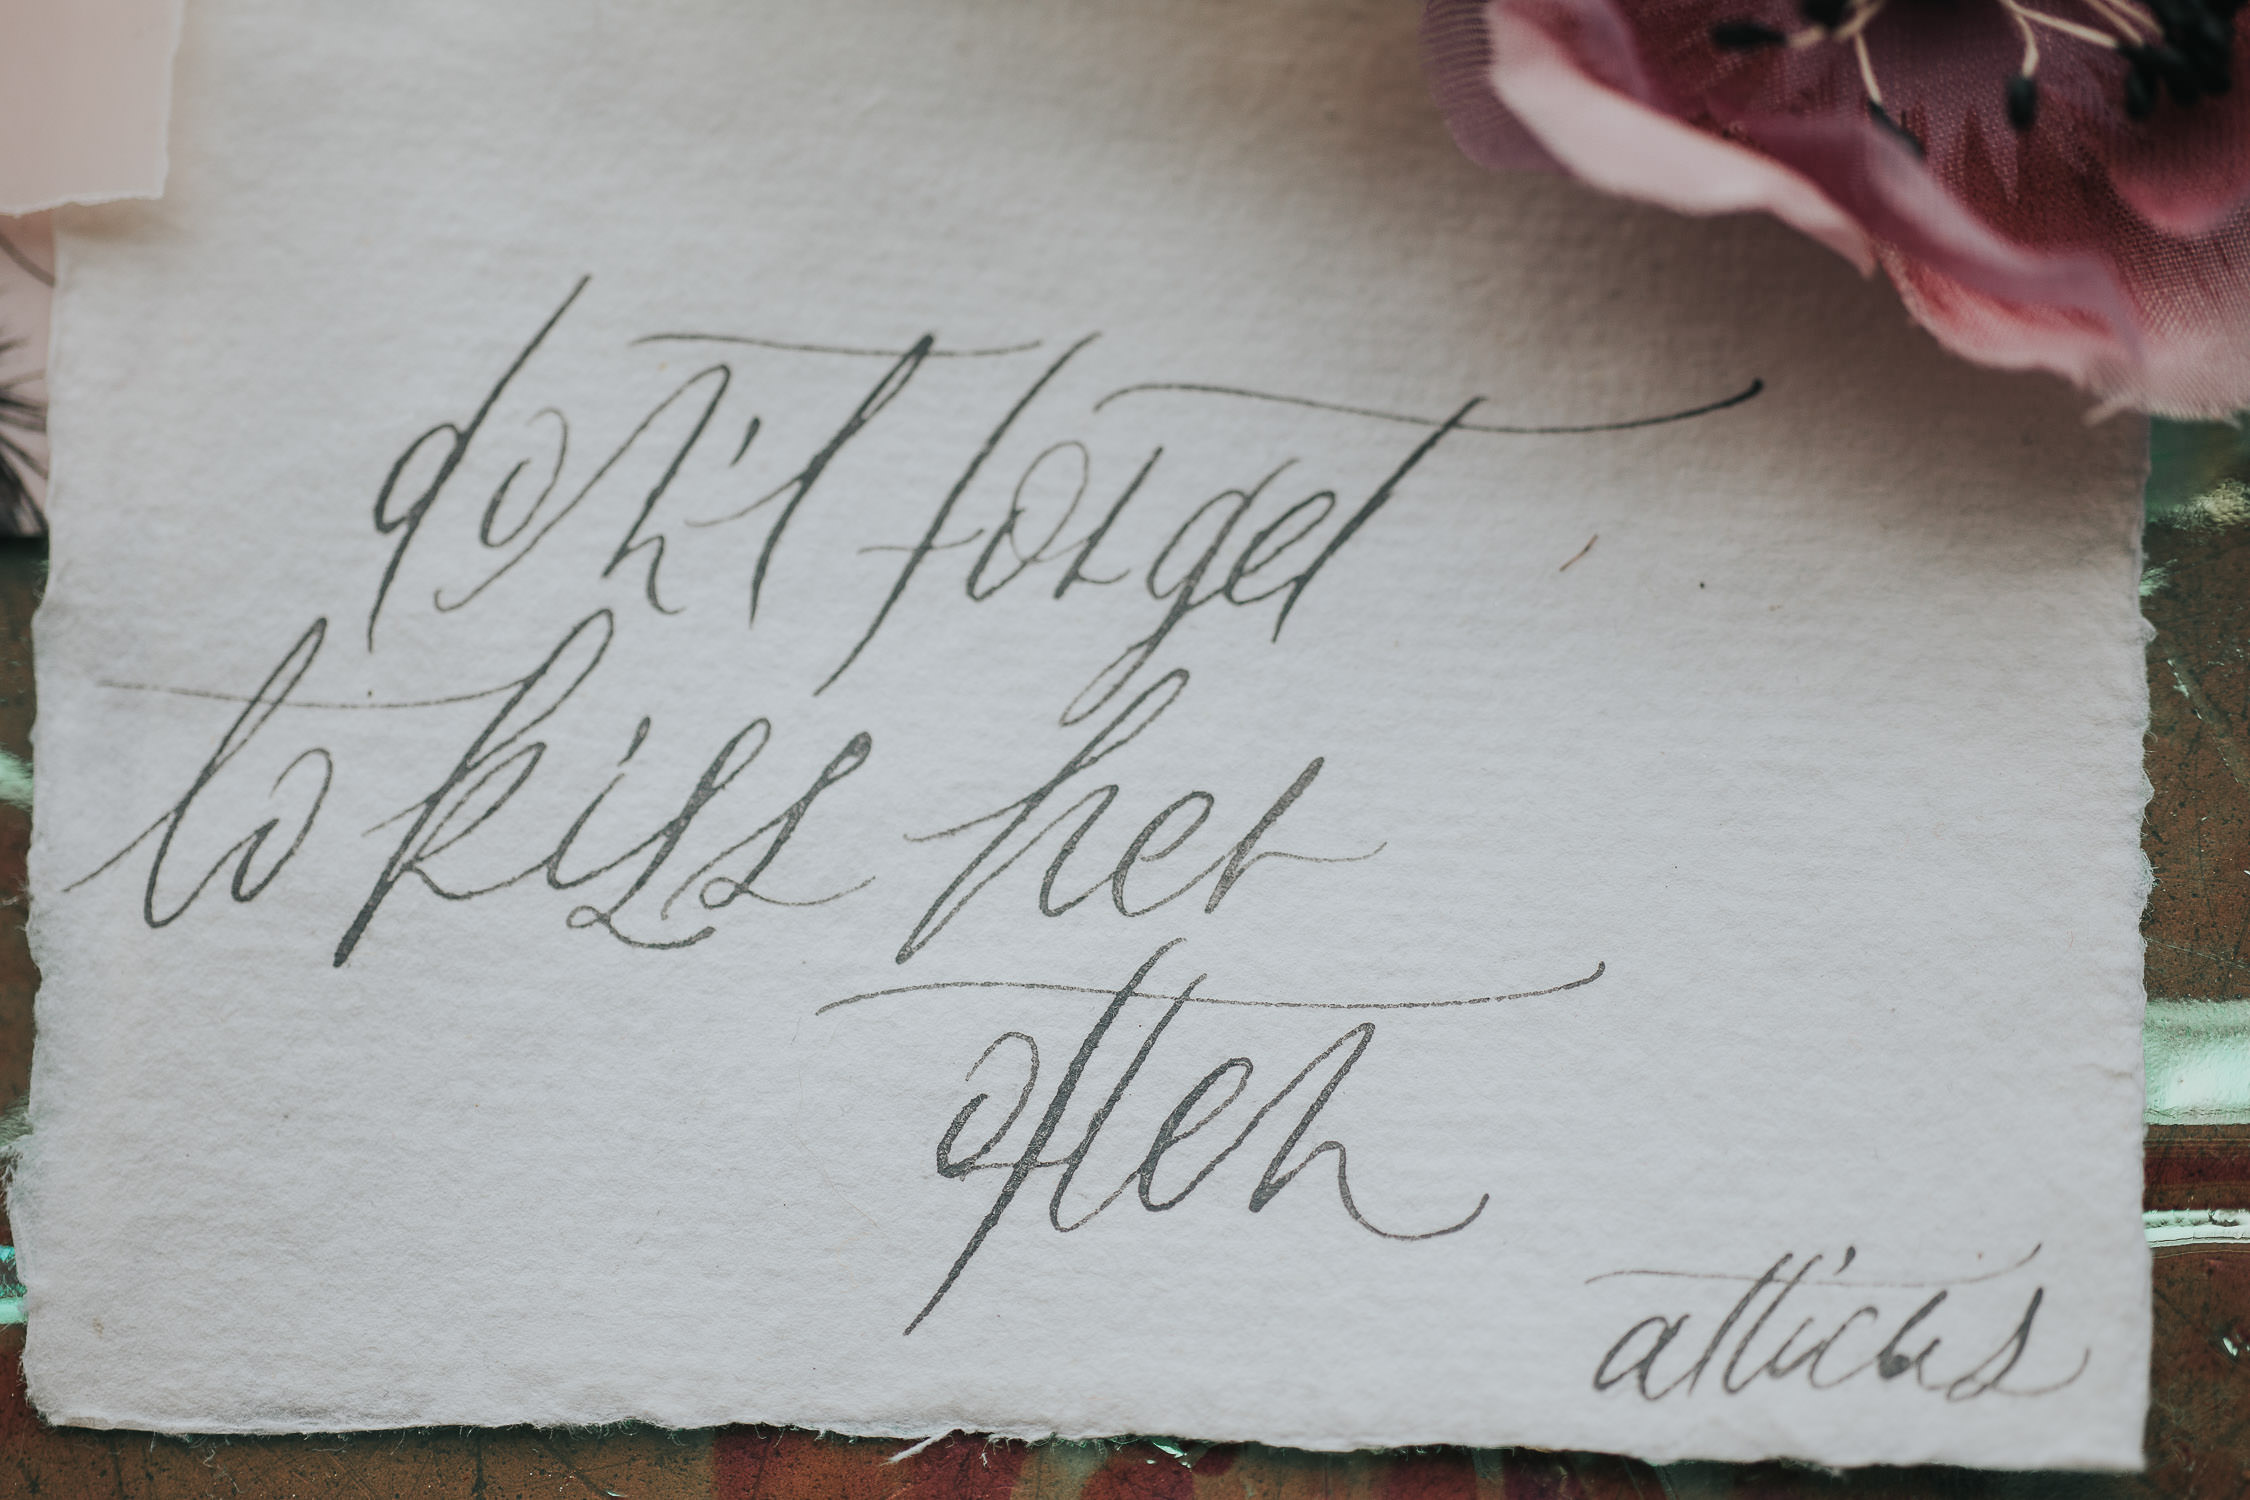 don't forget
to kiss her
often
atticus